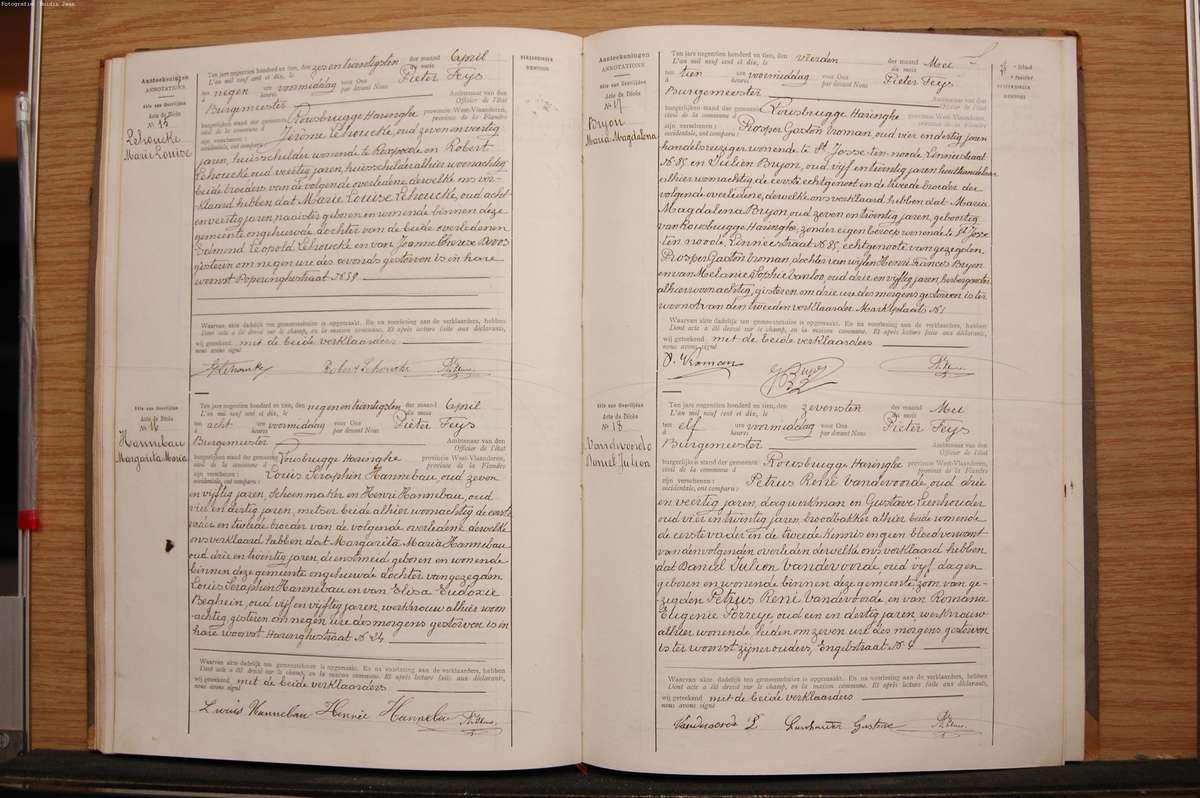 Fotografie: Buidin Jean
Aanteekeningen
ANNOTATIONS
Akte van Overlijden
Acte de Décès
N. 15
Lehoucke
Marie Louise
Ten jare negentien honderd en tien, den zes en twintigsten der maand April
L'an mil neuf cent et dix, le du mois
ten negen ure voormiddag voor Ons Pieter Feys
à heures par devant Nous
Burgemeester Ambtenaar van den
Officier de l'état
burgerlijken stand der gemeente Rousbrugge Haringhe provincie West-Vlaanderen,
civil de la commune d province de la Flandre
zijn verschenen: Jérome Lehoucke, oud zeven en veertig
occidentale, ont comparu:
jaren, huisschilder wonende te Reninghe en Robert
Lehoucke oud veertig jaren, huisschilder alhier woonachtig
beide broeders van de volgende overledene, derwelke ons ver-
klaard hebben dat Marie Louise Lehoucke, oud acht
en veertig jaren, naaister geboren en wonende binnen deze
gemeente ongehuwde dochter van de beide overledenen
Edmond Leopold Lehoucke en van Joanne Therese
gisteren om negen ure des avonds gestorven is in hare
woonst Poperinghestraat N. 59.
Waarvan akte dadelijk ten gemeentehuize is opgemaakt. En na voorlezing aan de verklaarders, hebben
Dont acte a été dressé sur le champ, en la maison commune. Et après lecture faite aux déclarants,
wij geteekend met de beide verklaarders
nous avons signé
Robert Lehoucke
Akte van Overlijden
Acte de Décès
N. 16
Hannebau
Margarita Maria
Ten jare negentien honderd en tien, den negen en twintigsten der maand April
L'an mil neuf cent et dix, le du mois
ten acht ure voormiddag voor Ons Pieter Feys
à heures par devant Nous
Burgemeester Ambtenaar van den
Officier de l'état
burgerlijken stand der gemeente Rousbrugge Haringhe provincie West-Vlaanderen,
civil de la commune d province de la Flandre
zijn verschenen: Louis Seraphin Hannebau, oud zeven
occidentale, ont comparu:
en vijftig jaren, schoenmaker en Henri Hannebau, oud
vier en dertig jaren, metser beide alhier woonachtig de eerste
vader en tweede broeder van de volgende overledene derwelke
ons verklaard hebben dat Margarita Maria Hannebau
oud drie en twintig jaren, dienstmeid geboren en wonende
binnen deze gemeente ongehuwde dochter van gezegden
Louis Seraphin Hannebau en van Elisa Eudoxie
Beghein, oud vijf en vijftig jaren, werkvrouw alhier woon-
achtig, gisteren om negen ure des morgens gestorven is in
hare woonst Haringhestraat N. 24
Waarvan akte dadelijk ten gemeentehuize is opgemaakt. En na voorlezing aan de verklaarders, hebben
Dont acte a été dressé sur le champ, en la maison commune. Et après lecture faite aux déclarants,
wij geteekend met de beide verklaarders
nous avons signé
Louis Hannebau Henrie Hannebau
VERZENDINGEN
MENTIONS
Aanteekeningen
ANNOTATIONS
Akte van Overlijden
Acte de Décès
N. 17
Bryon
Maria Magdalena
Ten jare negentien honderd en tien, den vierden der maand Mei
L'an mil neuf cent et dix, le du mois
ten tien ure voormiddag voor Ons Pieter Feys
à heures par devant Nous
Burgemeester Ambtenaar van den
Officier de l'état
burgerlijken stand der gemeente Rousbrugge Haringhe provincie West-Vlaanderen,
civil de la commune d province de la Flandre
zijn verschenen: Prosper Gaston Vroman, oud vier en dertig jaren
occidentale, ont comparu:
handelsreiziger wonende te St Josse-ten-noode Linnéestraat
N. 85 en Julien Bryon, oud vijf en twintig jaren, houthandelaar
alhier woonachtig, de eerste echtgenoot en de tweede broeder der
volgende overledene, derwelke ons verklaard hebben dat Maria
Magdalena Bryon, oud zeven en twintig jaren, geboortig
van Rousbrugge Haringhe, zonder eigen beroep wonende te St Josse
ten noode, Linnéestraat N. 85, echtgenoote van gezegden
Prosper Gaston Vroman, dochter van wijlen Henri Francis Bryon
en van Melanie Sophie Vanloo, oud drie en vijftig jaren, herbergierster
alhier woonachtig, gisteren om drie ure des morgens gestorven is ter
woonst van den tweeden verklaarder Marktplaats N. 1
Waarvan akte dadelijk ten gemeentehuize is opgemaakt. En na voorlezing aan de verklaarders, hebben
Dont acte a été dressé sur le champ, en la maison commune. Et après lecture faite aux déclarants,
wij geteekend met de beide verklaarders
nous avons signé
Vroman
Akte van Overlijden
Acte de Décès
N. 18
Vandevoorde
Daniel Julien
Ten jare negentien honderd en tien, den zevensten der maand Mei
L'an mil neuf cent et dix, le du mois
ten elf ure voormiddag voor Ons Pieter Feys
à heures par devant Nous
Burgemeester Ambtenaar van den
Officier de l'état
burgerlijken stand der gemeente Rousbrugge Haringhe provincie West-Vlaanderen,
civil de la commune d province de la Flandre
zijn verschenen: Petrus René Vandevoorde, oud drie
occidentale, ont comparu:
en veertig jaren, dagwerkman en Gustave Leenhouder
oud vier en twintig jaren, broodbakker alhier beide wonende
de eerste vader en de tweede kennis en geen bloedverwant
van den volgenden overleden derwelke ons verklaard hebben
dat Daniel Julien Vandevoorde, oud vijf dagen
geboren en wonende binnen deze gemeente zoon van ge-
zegden Petrus René Vandevoorde en van Romanie
Eugenie Forreye oud een en dertig jaren, werkvrouw
alhier wonende, heden om zeven ure des morgens gestorven
is ter woonst zijner ouders, Engelstraat N. 4
Waarvan akte dadelijk ten gemeentehuize is opgemaakt. En na voorlezing aan de verklaarders, hebben
Dont acte a été dressé sur le champ, en la maison commune. Et après lecture faite aux déclarants,
wij geteekend met de beide verklaarders
nous avons signé
Vandevoorde P Leenhouder Gustave
VERZENDINGEN
MENTIONS